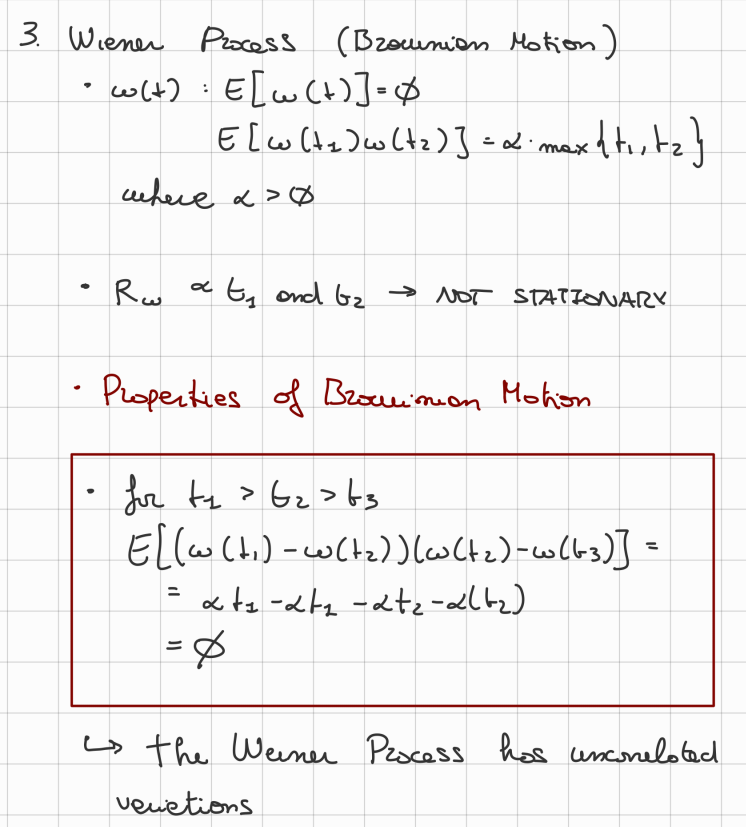 3. Wiener Process (Brownian Motion)
· ω(t) : E[ω(t)]=∅
E[ω(t₁)ω(t₂)] = α·max{t₁,t₂}
where α > ∅
· Rω ∝ t₁ and t₂ → NOT STATIONARY
· Properties of Brownian Motion
· for t₁ > t₂ > t₃
E[(ω(t₁)-ω(t₂))(ω(t₂)-ω(t₃)] =
= αt₁ -αt₁ -αt₂ -α(t₂)
= ∅
↪ the Weiner Process has uncorrelated
variations